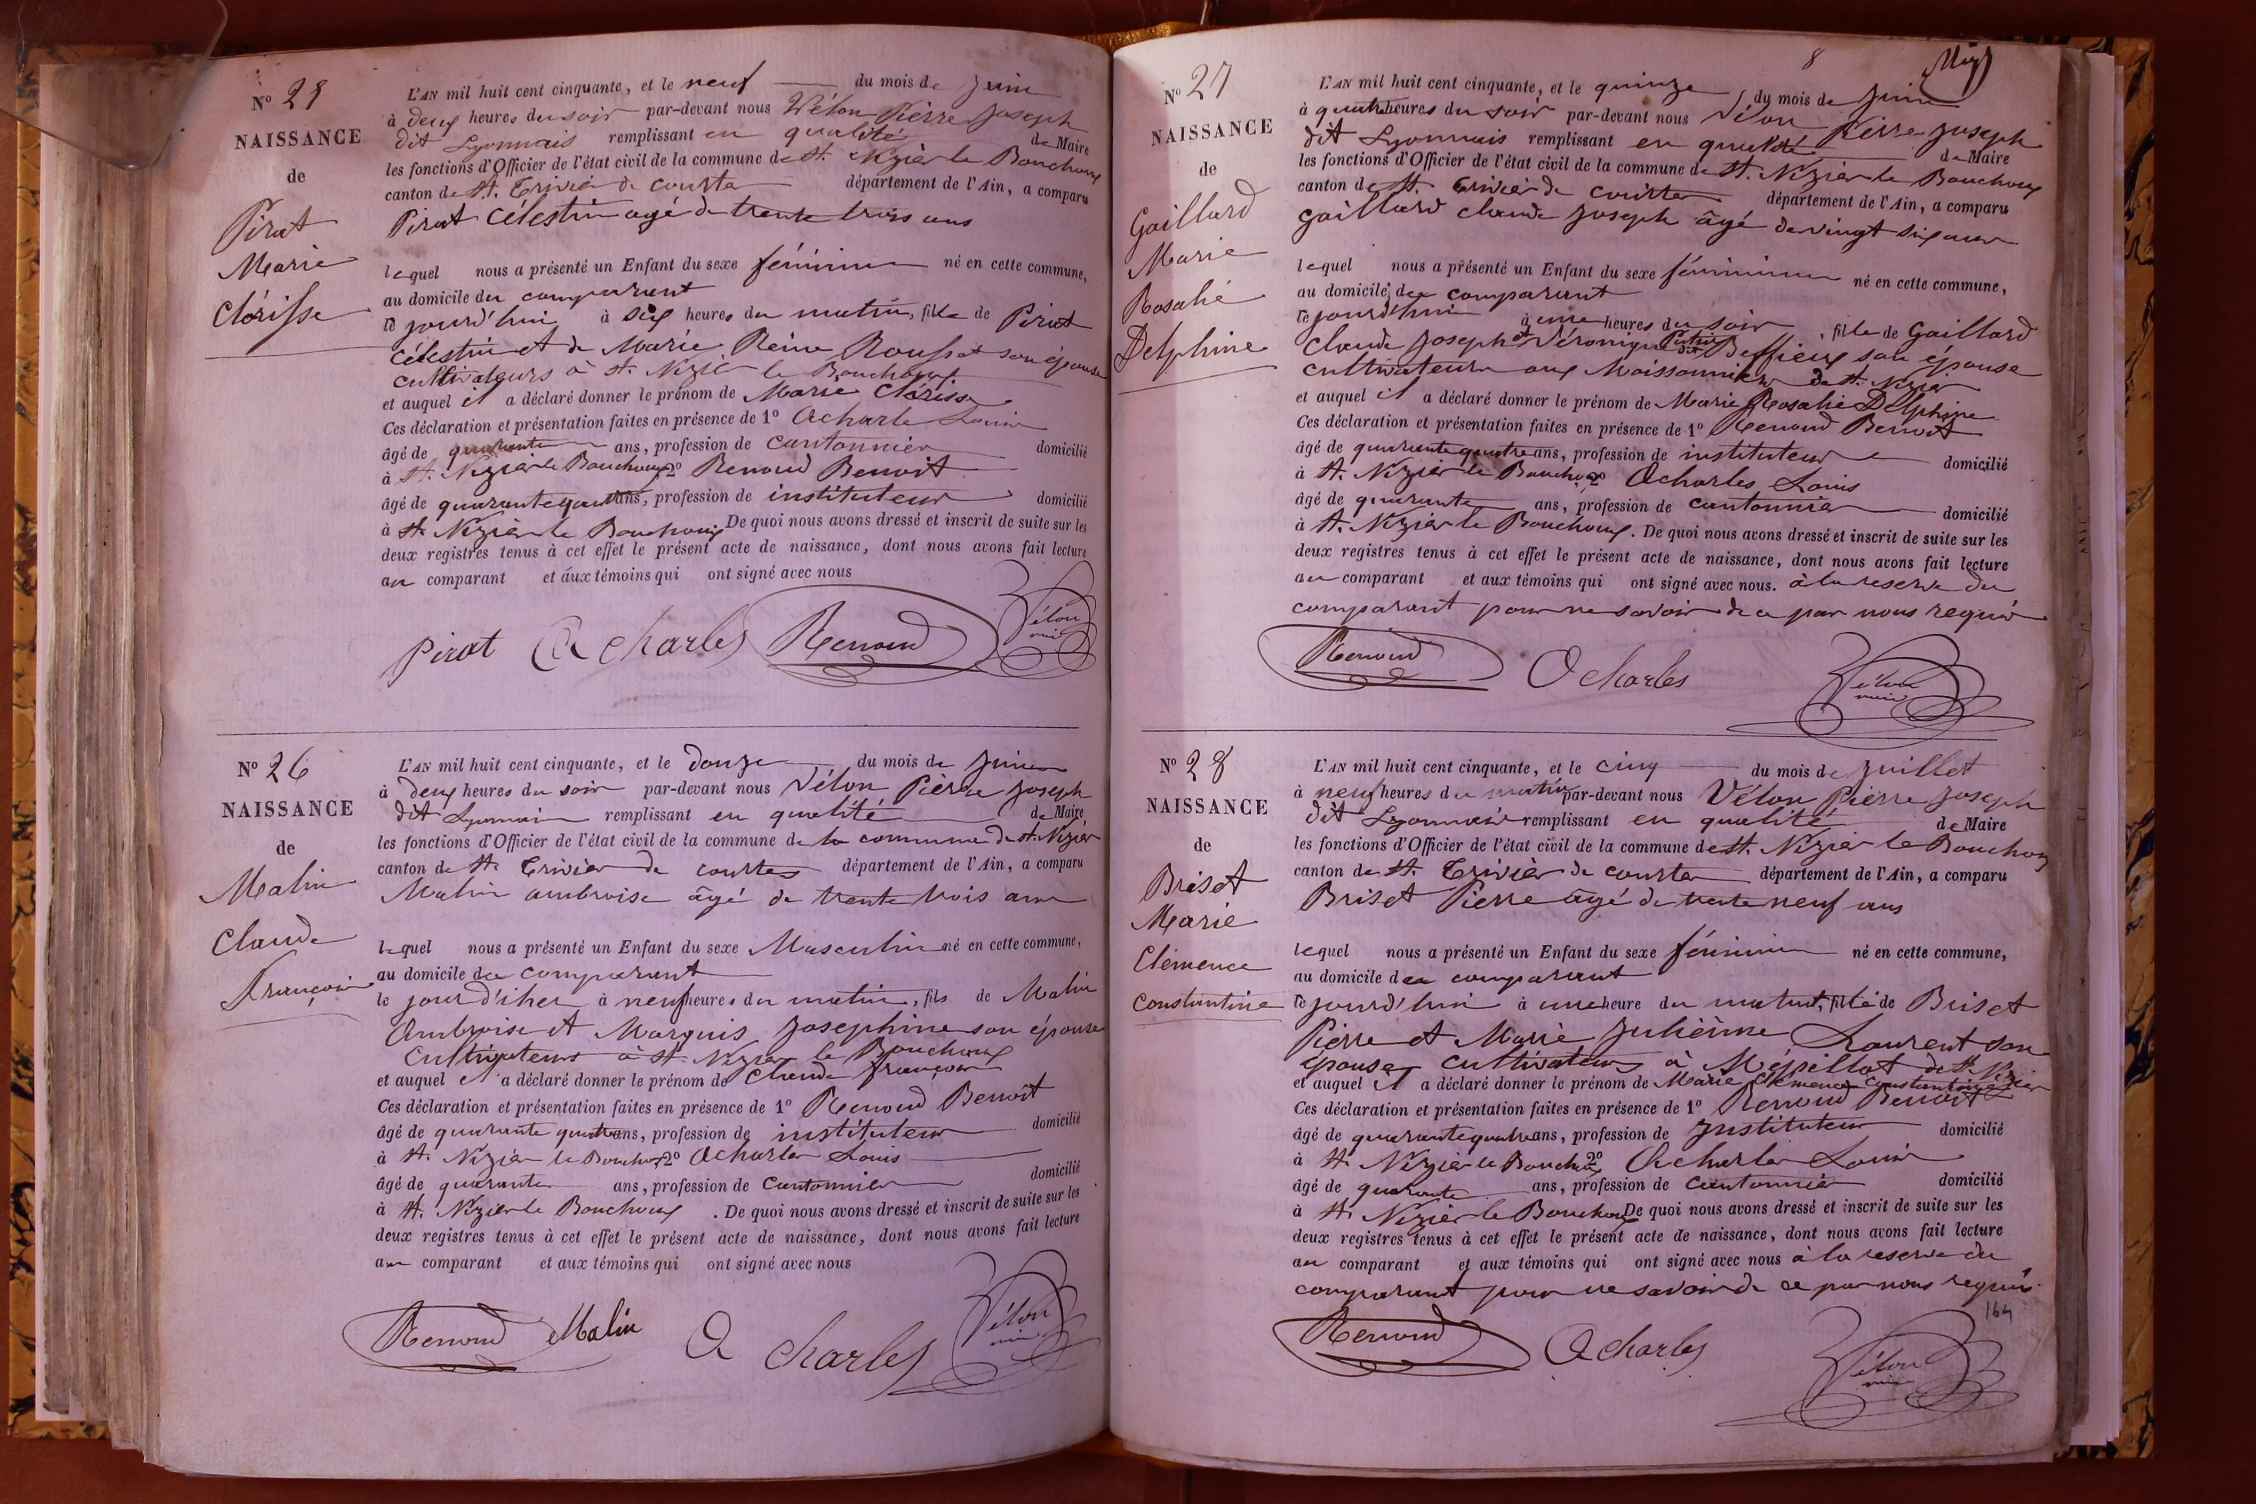 N° 25
NAISSANCE
de
Pirat
Marie
Clérisse
L'AN mil huit cent cinquante, et le neuf du mois de Juin
à deux heures du soir par-devant nous Vélon Pierre Joseph
dit Lyonnais remplissant en qualité de Maire
les fonctions d'Officier de l'état civil de la commune de St. Nizier le Bouchoux
canton de St. Trivier de courtes département de l'Ain, a comparu
Pirat Célestin agé de trente trois ans
lequel nous a présenté un Enfant du sexe féminin né en cette commune,
au domicile du comparant
ce jourd'hui à six heures du matin, fille de Pirat
célestin et de Marie Reine Roussat son épouse
cultivateurs à St. Nizier le Bouchoux
et auquel il a déclaré donner le prénom de Marie Clérisse
Ces déclaration et présentation faites en présence de 1° Acharles Louis
âgé de quarante ans, profession de cantonnier domicilié
à St. Nizier le Bouchoux 2° Renoud Benoit
âgé de quarante quatre ans, profession de instituteur domicilié
à St. Nizier le Bouchoux De quoi nous avons dressé et inscrit de suite sur les
deux registres tenus à cet effet le présent acte de naissance, dont nous avons fait lecture
au comparant et aux témoins qui ont signé avec nous
Pirat Acharles Renoud Vélon
N° 26
NAISSANCE
de
Malin
Claude
François
L'AN mil huit cent cinquante, et le douze du mois de Juin
à deux heures du soir par-devant nous Vélon Pierre Joseph
dit Lyonnais remplissant en qualité de Maire
les fonctions d'Officier de l'état civil de la commune de la commune de St. Nizier
canton de St. Trivier de courtes département de l'Ain, a comparu
Malin ambroise âgé de trente trois ans
lequel nous a présenté un Enfant du sexe Masculin né en cette commune,
au domicile du comparant
le jour d'hier à neuf heures du matin, fils de Malin
Ambroise et Marquis Josephine son épouse
Cultivateurs à St. Nizier le Bouchoux
et auquel il a déclaré donner le prénom de Claude françois
Ces déclaration et présentation faites en présence de 1° Renoud Benoît
âgé de quarante quatre ans, profession de instituteur domicilié
à St. Nizier le Bouchoux 2° Acharles Louis
âgé de quarante ans, profession de Cantonnier domicilié
à St. Nizier le Bouchoux . De quoi nous avons dressé et inscrit de suite sur les
deux registres tenus à cet effet le présent acte de naissance, dont nous avons fait lecture
au comparant et aux témoins qui ont signé avec nous
Renoud Malin Acharles Vélon
8
N° 27
NAISSANCE
de
Gaillard
Marie
Rosalie
Delphine
L'AN mil huit cent cinquante, et le quinze du mois de Juin
à quatre heures du soir par-devant nous Vélon Pierre Joseph
dit Lyonnais remplissant en qualité de Maire
les fonctions d'Officier de l'état civil de la commune de St. Nizier le Bouchoux
canton de St. Trivier de courtes département de l'Ain, a comparu
Gaillard claude Joseph âgé de vingt six ans
lequel nous a présenté un Enfant du sexe féminin né en cette commune,
au domicile du comparant
ce jourd'hui à une heures du soir, fille de Gaillard
claude Joseph et Véronique dit Beffieux son épouse
cultivateurs aux Moissonniers de St. Nizier
et auquel il a déclaré donner le prénom de Marie Rosalie Delphine
Ces déclaration et présentation faites en présence de 1° Renoud Benoit
âgé de quarante quatre ans, profession de instituteur domicilié
à St. Nizier le Bouchoux 2° Acharles Louis
âgé de quarante ans, profession de cantonnier domicilié
à St. Nizier le Bouchoux. De quoi nous avons dressé et inscrit de suite sur les
deux registres tenus à cet effet le présent acte de naissance, dont nous avons fait lecture
au comparant et aux témoins qui ont signé avec nous. à la reserve du
comparant pour ne savoir de ce par nous requis
Renoud Acharles Vélon
N° 28
NAISSANCE
de
Briset
Marie
Clémence
Constantine
L'AN mil huit cent cinquante, et le cinq du mois de Juillet
à neuf heures du matin par-devant nous Vélon Pierre Joseph
dit Lyonnais remplissant en qualité de Maire
les fonctions d'Officier de l'état civil de la commune de St. Nizier le Bouchoux
canton de St. Trivier de courtes département de l'Ain, a comparu
Briset Pierre âgé de trente neuf ans
lequel nous a présenté un Enfant du sexe féminin né en cette commune,
au domicile du comparant
ce jourd'hui à une heure du matin, fille de Briset
Pierre et Marie Julienne Laurent son
épouse, cultivateurs à Mépillat de St. Nizier
et auquel il a déclaré donner le prénom de Marie Clémence Constantine
Ces déclaration et présentation faites en présence de 1° Renoud Benoit
âgé de quarante quatre ans, profession de Instituteur domicilié
à St. Nizier le Bouchoux 2° Acharles Louis
âgé de quarante ans, profession de cantonnier domicilié
à St. Nizier le Bouchoux De quoi nous avons dressé et inscrit de suite sur les
deux registres tenus à cet effet le présent acte de naissance, dont nous avons fait lecture
au comparant et aux témoins qui ont signé avec nous à la reserve du
comparant pour ne savoir de ce par nous requis
164
Renoud Acharles Vélon